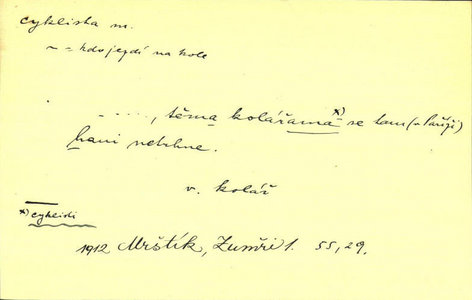 cyklista m.
~ = kdo jezdí na kole
- . . . ., těma kolářama x) se tam (v Paříži)
hani nehne.
v. kolář
x) cyklisti
1912 Mrštík, Zumři 1. 55, 29.